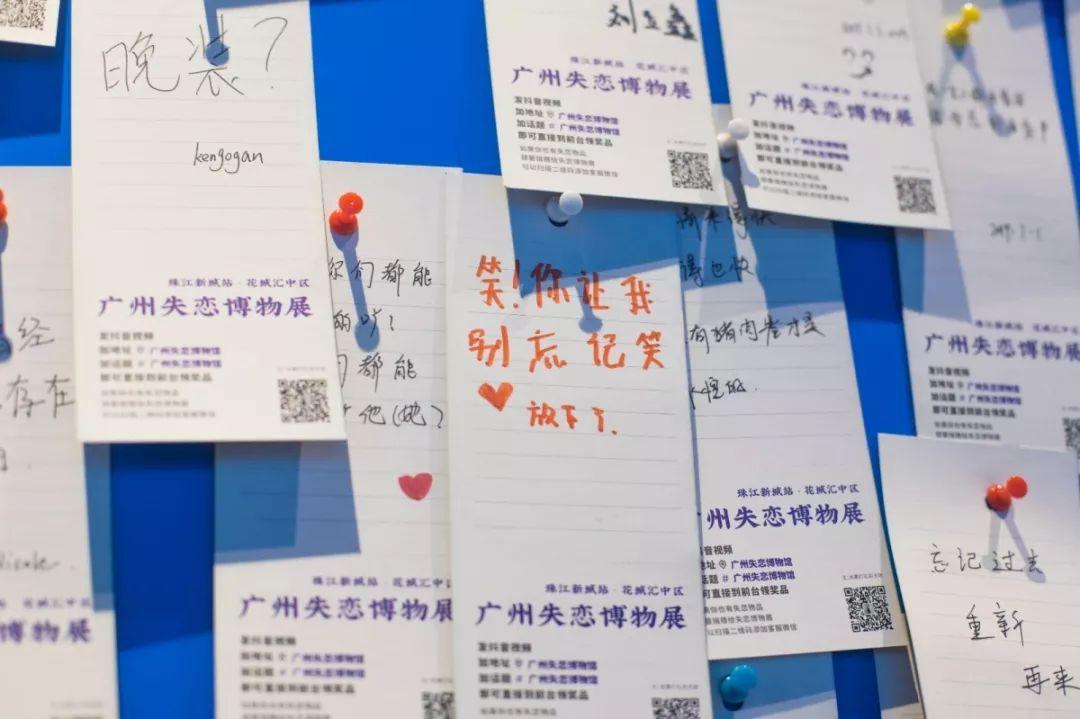 晚装？
kengogan
珠江新城站·花城汇中区
广州失恋博物展
发抖音视频
加地址 广州失恋博物馆
加话题 # 广州失恋博物馆
即可直接到前台领奖品
如果你也有失恋物品
可以扫描二维码添加客服微信
珠江新城站·花城汇中区
广州失恋博物展
发抖音视频
加地址 广州失恋博物馆
加话题 # 广州失恋博物馆
即可直接到前台领奖品
如果你也有失恋物品
可以扫描二维码添加客服微信
??
珠江新城站·花城汇中区
广州失恋博物展
发抖音视频
加地址 广州失恋博物馆
加话题 # 广州失恋博物馆
即可直接到前台领奖品
经
存在
博物展
们都能
的吗？
们都能
他(她)？
珠江新城站·花城汇中区
广州失恋博物展
发抖音视频
加地址 广州失恋博物馆
加话题 # 广州失恋博物馆
即可直接到前台领奖品
笑！你让我
别忘记笑
放下了.
珠江新城站·花城汇中区
广州失恋博物展
发抖音视频
加地址 广州失恋博物馆
加话题 # 广州失恋博物馆
即可直接到前台领奖品
来得快
得也快
有猪肉卷才是
珠江新城站·花城汇中区
州失恋博物展
音视频
地址 广州失恋博物馆
话题 # 广州失恋博物馆
可直接到前台领奖品
果你也有失恋物品
以扫描二维码添加客服微信
珠江新城站·花城汇中
广州失恋博物展
发抖音视频
加地址 广州失恋博物馆
加话题 # 广州失恋博物馆
即可直接到前台领奖品
忘记过去
重新
再来